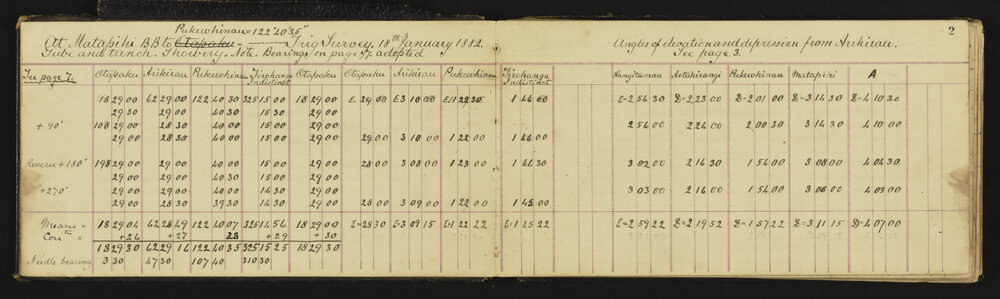 2
Pukewhinau = 122°40'35"
At Matapihi B.B to Otapaku = Trig Survey. 18th January 1882. Angles of elevation and depression from Arikirau.
Tube and tunch. Thowery. Note. Bearings on page 7 adopted See page 3.
See page 7. Otapaku Arikirau Pukewhinau Tirohanga Indistinct Otapaku Otapaku Arikirau Pukewhinau Tirohanga Indistinct Rangitumau Aotihirangi Pukewhinau Matapihi A
18 29 00 62 29 00 122 40 30 325 15 00 18 29 00 E. 29 00 E 3 10 00 E 1 22 30 1 46 00 E=2 56 30 D=2 23 00 D=2 01 00 D=3 14 30 D=4 10 30
29 30 29 00 40 30 15 30 29 00
+90° 108 29 00 28 30 40 00 15 00 29 00 2 56 00 2 24 00 2 00 30 3 14 30 4 10 00
29 00 28 30 40 00 15 00 29 00 29 00 3 10 00 1 22 00 1 46 00
Reverse +180° 198 29 00 29 00 40 00 15 00 29 00 28 00 3 08 00 1 23 00 1 44 30 3 02 00 2 16 30 1 54 00 3 08 00 4 04 30
29 00 29 00 40 00 15 00 29 00
+270° 29 00 29 00 40 30 14 30 29 00 3 03 00 2 16 00 1 54 00 3 08 00 4 03 00
29 00 28 30 39 30 14 30 29 00 28 00 3 09 00 1 22 00 1 45 00
Means = 18 29 04 62 28 49 122 40 07 325 14 56 18 29 00 E=28 30 E=3 09 15 E=1 22 22 E=1 45 22 E=2 59 22 D=2 19 52 D=1 57 22 D=3 11 15 D=4 07 00
Corrn = +26 +27 28 +29 +30
18 29 30 62 29 16 122 40 35 325 15 25 18 29 30
Needle bearing 3 30 47 30 107 40 310 30